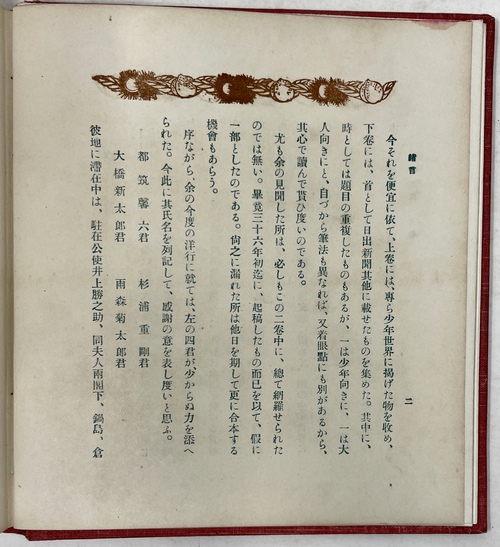 緖言
二
今それを便宜に依て、上卷には、專ら少年世界に揭げた物を收め、
下卷には、首として日出新聞其他に載せたものを集めた。其中に、
時としては題目の重複したものもあるが、一は少年向きに、一は大
人向きにと、自づから筆法も異なれば、又着眼點にも別があるから、
其心で讀んで貰ひ度いのである。
尤も余の見聞した所は、必しもこの二卷中に、總て網羅せられた
のでは無い。畢竟三十六年初迄に、起稿したもの而已を以て、假に
一部としたのである。尙之に漏れた所は他日を期して更に合本する
機會もあらう。
序ながら、余の今度の洋行に就ては、左の四君が、少からぬ力を添へ
られた。今此に其氏名を列記して、感謝の意を表し度いと思ふ。
都筑馨六君 杉浦重剛君
大橋新太郎君 雨森菊太郎君
彼地に滯在中は、駐在公使井上勝之助、同夫人兩閣下、鍋島、倉